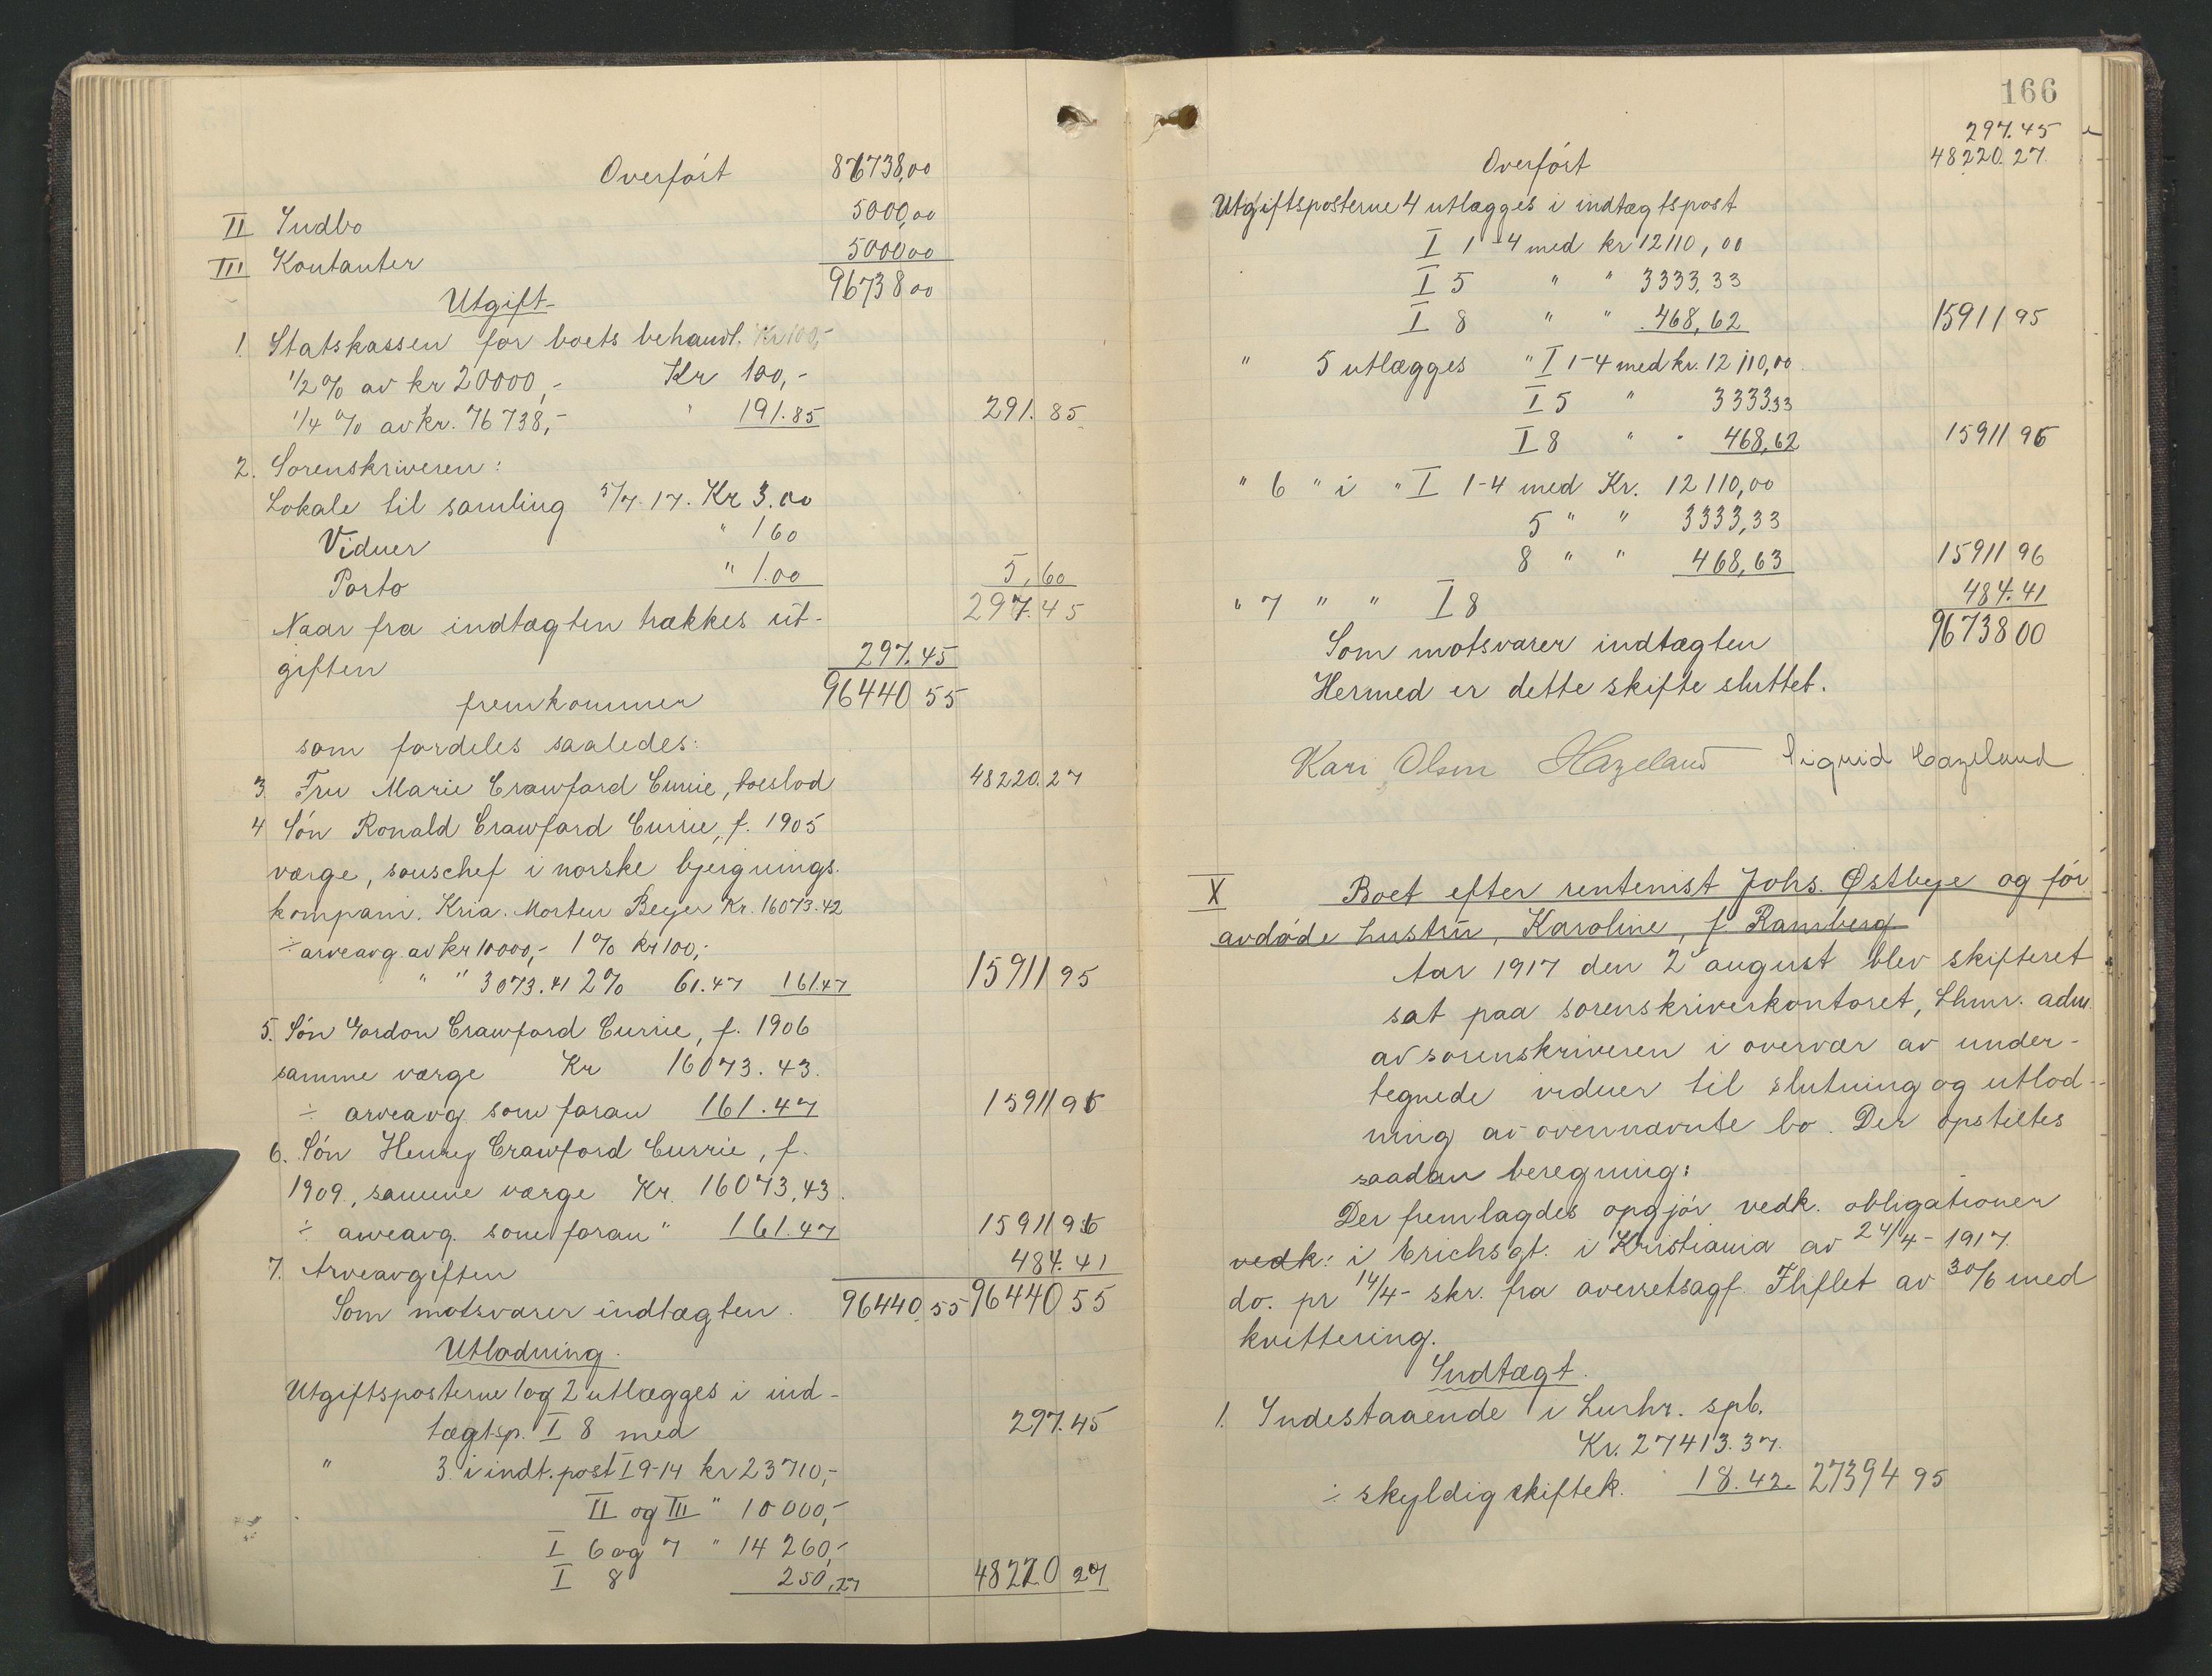 Overført 86738,00
II Indbo 5000,00
III Kontanter 5000 00
96738 00
Utgift
1. Statskassen for boets behandl. Kr 100,-
1/2 % av kr 20000,- Kr 100,-
1/4 % av kr. 76738,- " 191.85 291.85
2. Sorenskriveren:
Lokale til samling 5/7.17. Kr 3.00
Vidner " 1 60
Porto " 1.00 5,60
Naar fra indtægten trækkes ut- 297.45
giften 297.45
fremkommer 96440 55
som fordeles saaledes:
3 Fru Marie Crawford Currie, boeslod 48220.27
4 Søn Ronald Crawford Currie, f. 1905
værge, souschef i norske bjergnings.
kompani. Kria. Morten Beyer Kr. 16073.42
÷ arveavg. av kr 10000,- 1% kr 100,-
" " 3073.41 2% 61.47 161.47 15911 95
5. Søn Gordon Crawford Currie, f. 1906
samme værge Kr 16073.43.
÷ arveavg. som foran 161.47 15911 96
6. Søn Henry Crawford Currie, f.
1909., samme værge Kr. 16073,43.
÷ arveavg. som foran " 161.47 15911 96
7. Arveavgiften 484.41
Som motsvarer indtægten. 96440.55 96440 55
Utlodning.
Utgiftsposterne 1 og 2 utlægges i ind-
tægtsp. I 8 med 297.45
" 3 i indt. post I 9-14 kr 23710,-
II og III " 10 000,-
I 6 og 7 " 14 260,-
I 8 250,27 48220 27
166
297.45
Overført 48220.27.
Utgiftsposterne 4 utlægges i indtægtspost
I 1-4 med kr 12110,00
I 5 " " 3333.33
I 8 " " 468,62 15911 95
" 5 utlægges " I 1-4 med kr. 12110,00.
I 5 " 3333.33
I 8 " " 468,62 15911 96
" 6 " i " I 1-4 med Kr. 12110,00
5 " " 3333,33
8 " " 468,63 15911 96
" 7 " " I 8 484.41
Som motsvarer indtægten 96738 00
Hermed er dette skifte sluttet.
Kari Olsen Hazeland Sigrid Hazeland
X Boet efter rentenist Johs. Østbye og før
avdøde hustru, Karoline, f. Ramberg
Aar 1917 den 2 august blev skifteret
sat paa sorenskriverkontoret, Lhmr. adm.
av sorenskriveren i overvær av under-
tegnede vidner til slutning og utlod-
ning av ovennævnte bo. Der opstiltes
saadan beregning:
Der fremlagdes opgjør vedk. obligationer
vedk: i Erichsgt. i Kristiania av 24/4-1917
do. pr 14/4- skr. fra overretsagf. Thflet av 30/6 med
kvittering.
Indtægt.
1. Indestaaende i Lurhr. spb.
Kr. 27413.37.
÷ skyldig skiftek. 18.42. 27394 95